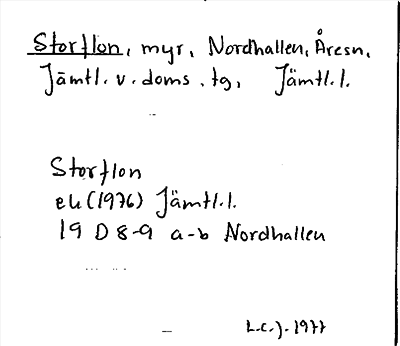 Storflon, myr, Nordhallen, Åresn,
Jämtl. v. doms. tg, Jämtl. l.
Storflon
ek (1976) Jämtl. l.
19 D 8-9 a-b Nordhallen
L.C.J. 1977